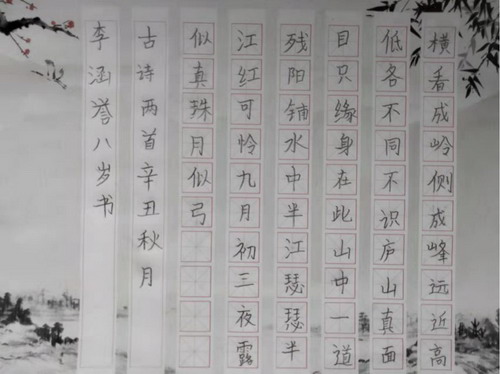 横看成岭侧成峰远近高
低各不同不识庐山真面
目只缘身在此山中一道
残阳铺水中半江瑟瑟半
江红可怜九月初三夜露
似真珠月似弓
古诗两首辛丑秋月
李涵誉八岁书